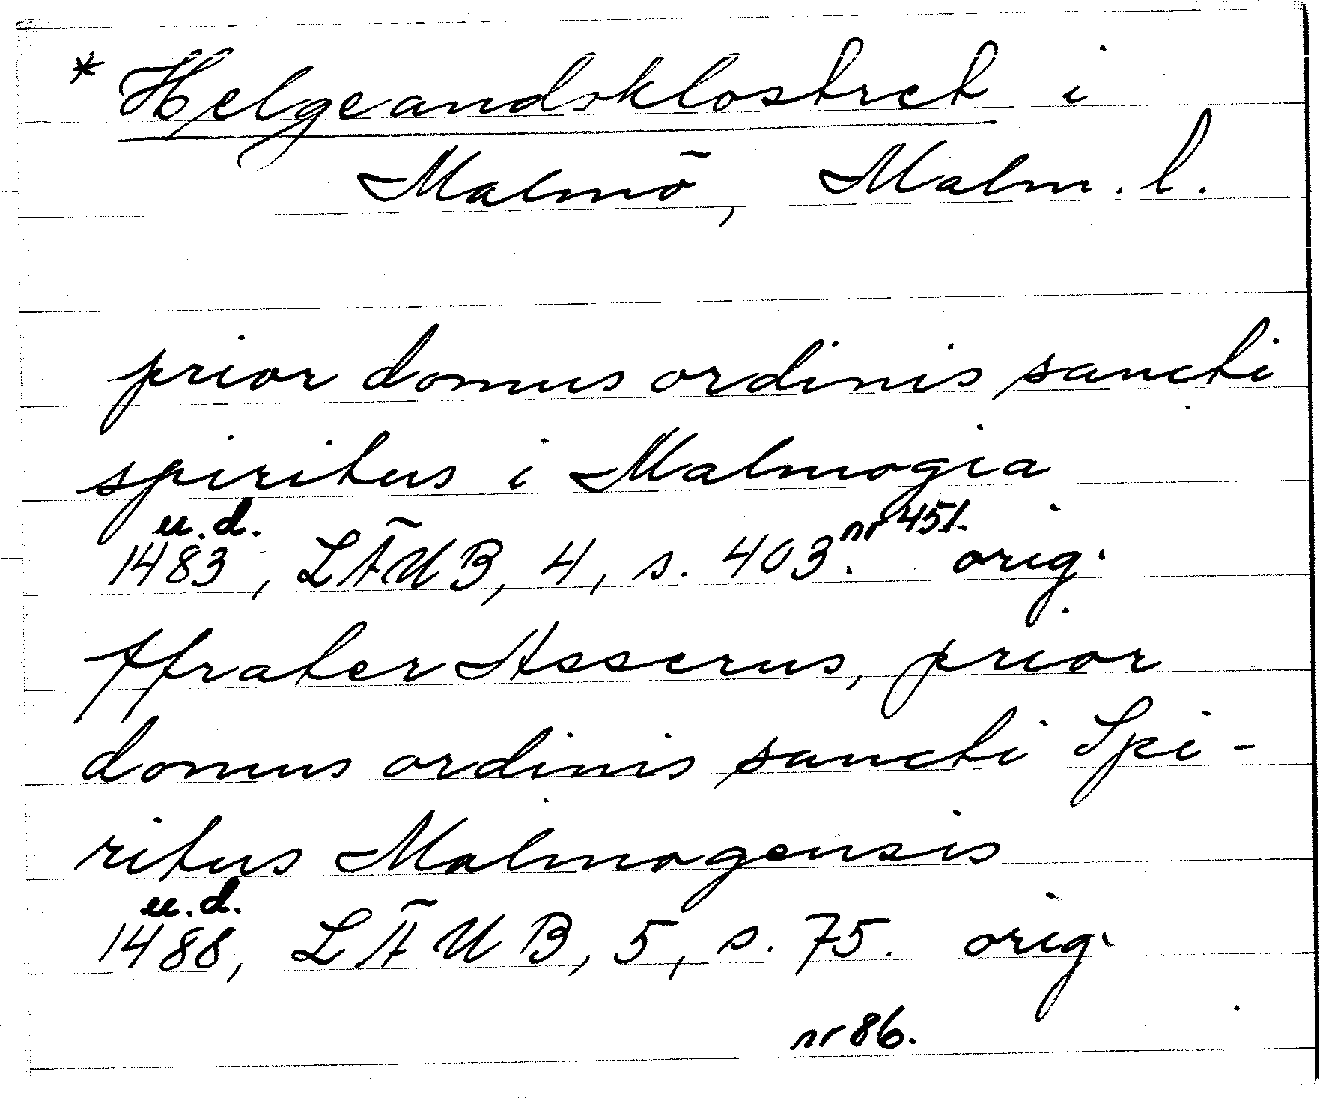 * Helgeandsklostret i
Malmö, Malm. l.
prior domus ordinis sancti
spiritus i Malmogia
u.d.
1483, LÄUB, 4, s. 403. nr 451. orig.
ffrater Asserus, prior
domus ordinis sancti Spi-
ritus Malmogensis
u.d.
1488, LÄUB, 5, s. 75. orig.
nr 86.